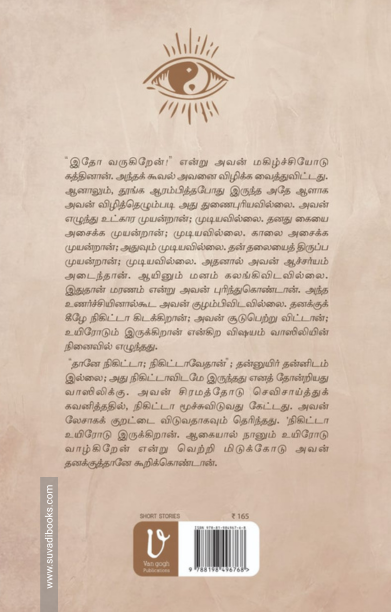 "இதோ வருகிறேன்!" என்று அவன் மகிழ்ச்சியோடு
கத்தினான். அந்தக் கூவல் அவனை விழிக்க வைத்துவிட்டது.
ஆனாலும், தூங்க ஆரம்பித்தபோது இருந்த அதே ஆளாக
அவன் விழித்தெழும்படி அது துணைபுரியவில்லை. அவன்
எழுந்து உட்கார முயன்றான்; முடியவில்லை. தனது கையை
அசைக்க முயன்றான்; முடியவில்லை. காலை அசைக்க
முயன்றான்; அதுவும் முடியவில்லை. தன் தலையைத் திருப்ப
முயன்றான்; முடியவில்லை. அதனால் அவன் ஆச்சர்யம்
அடைந்தான். ஆயினும் மனம் கலங்கிவிடவில்லை.
இதுதான் மரணம் என்று அவன் புரிந்துகொண்டான். அந்த
உணர்ச்சியினால்கூட அவன் குழம்பிவிடவில்லை. தனக்குக்
கீழே நிகிட்டா கிடக்கிறான்; அவன் சூடுபெற்று விட்டான்;
உயிரோடும் இருக்கிறான் என்கிற விஷயம் வாஸிலியின்
நினைவில் எழுந்தது.
"தானே நிகிட்டா; நிகிட்டாவேதான்"; தன்னுயிர் தன்னிடம்
இல்லை; அது நிகிட்டாவிடமே இருந்தது எனத் தோன்றியது
வாஸிலிக்கு. அவன் சிரமத்தோடு செவிசாய்த்துக்
கவனித்ததில், நிகிட்டா மூச்சுவிடுவது கேட்டது. அவன்
லேசாகக் குறட்டை விடுவதாகவும் தெரிந்தது. 'நிகிட்டா
உயிரோடு இருக்கிறான். ஆகையால் நானும் உயிரோடு
வாழ்கிறேன் என்று வெற்றி மிடுக்கோடு அவன்
தனக்குத்தானே கூறிக்கொண்டான்.
www.suvadibooks.com
SHORT STORIES
₹ 165
Van gogh
Publications
9 788198 496768